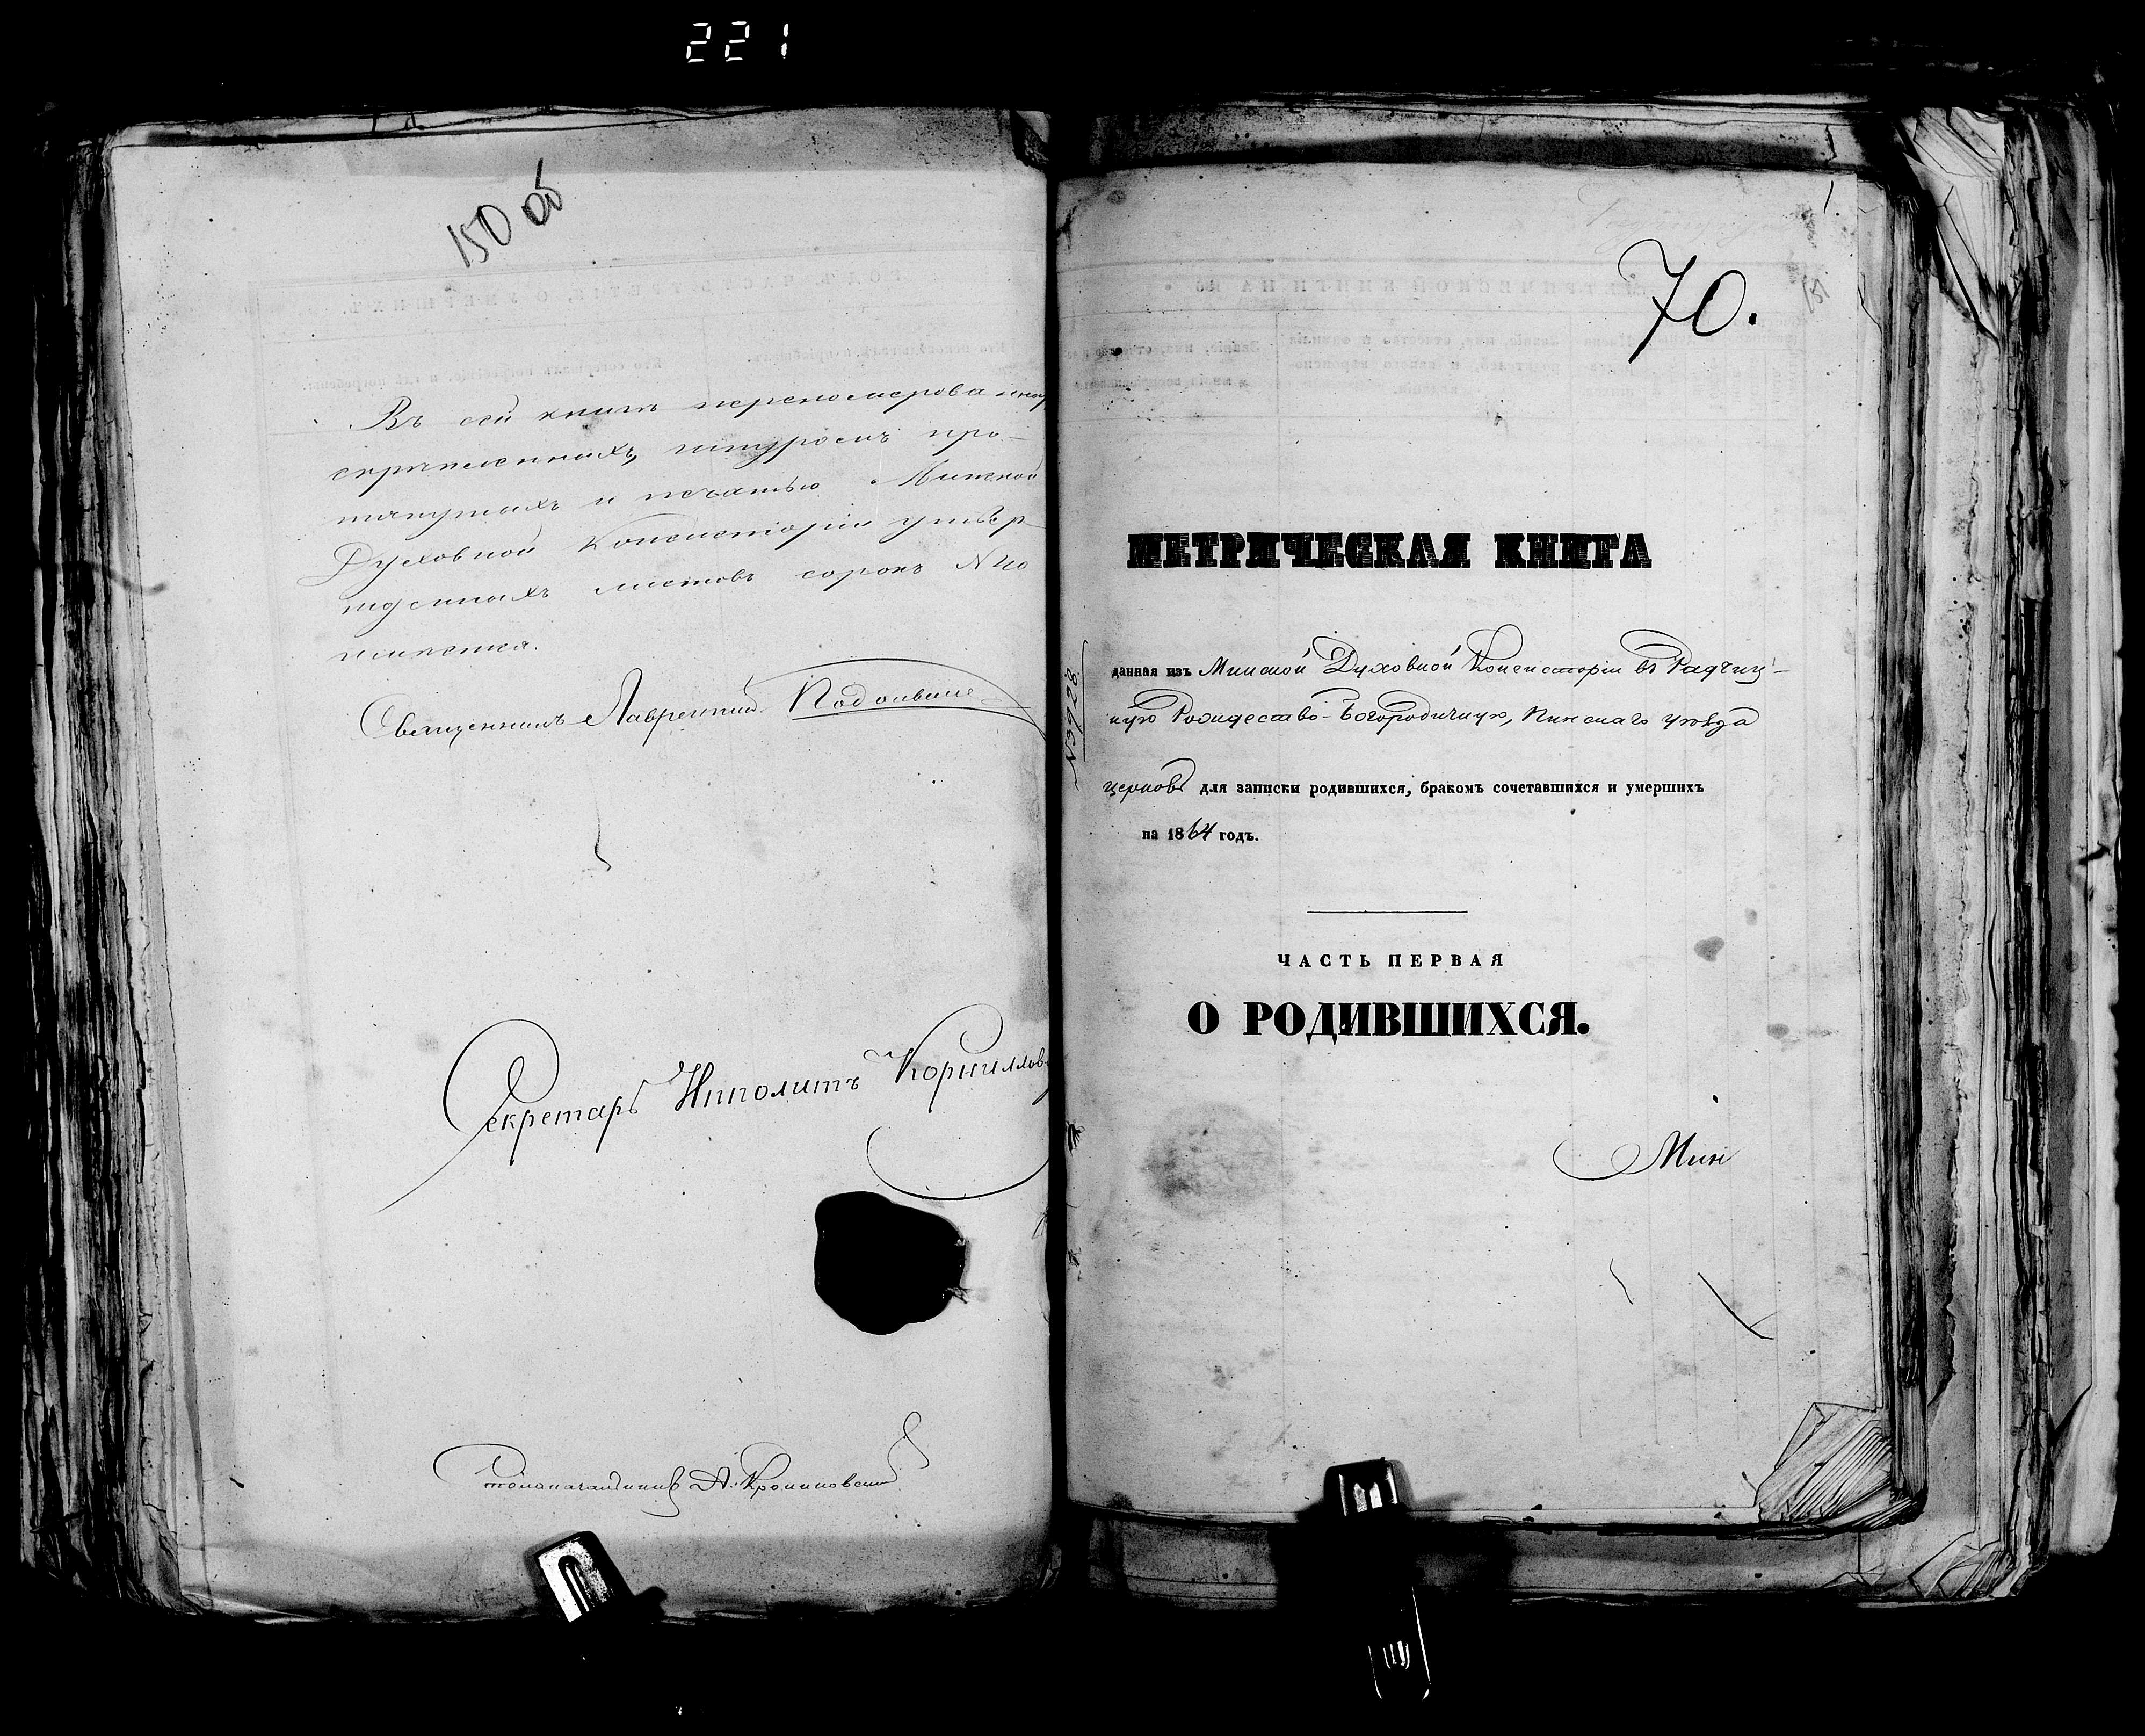 221
150 об
Въ сей книгѣ перенумерованныхъ
скрѣпленныхъ, шнуромъ про-
тянутыхъ и печатью Минской
Духовной Консисторіи утвер-
жденныхъ листовъ сорокъ N 40
имѣется.
Священникъ Лаврентій
Секретарь Ипполитъ Корнилов
Столоначальникъ А.
1.
70.
151
МЕТРИЧЕСКАЯ КНИГА
N 3928
данная изъ Минской Духовной Консисторіи въ Радчиц-
кую Рождество-Богородичную, Пинскаго уѣзда
церковь для записки родившихся, бракомъ сочетавшихся и умершихъ
на 1864 годъ.
ЧАСТЬ ПЕРВАЯ
О РОДИВШИХСЯ.
Мин